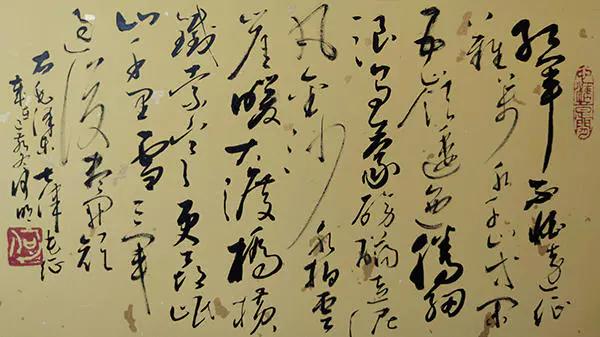 红军不怕远征
难万水千山只等闲
五岭逶迤腾细
浪乌蒙磅礴走泥
丸金沙水拍雲
崖暖大渡橋横
鐵索寒更喜岷
山千里雪三军
过後尽開颜
右毛泽东七律长征